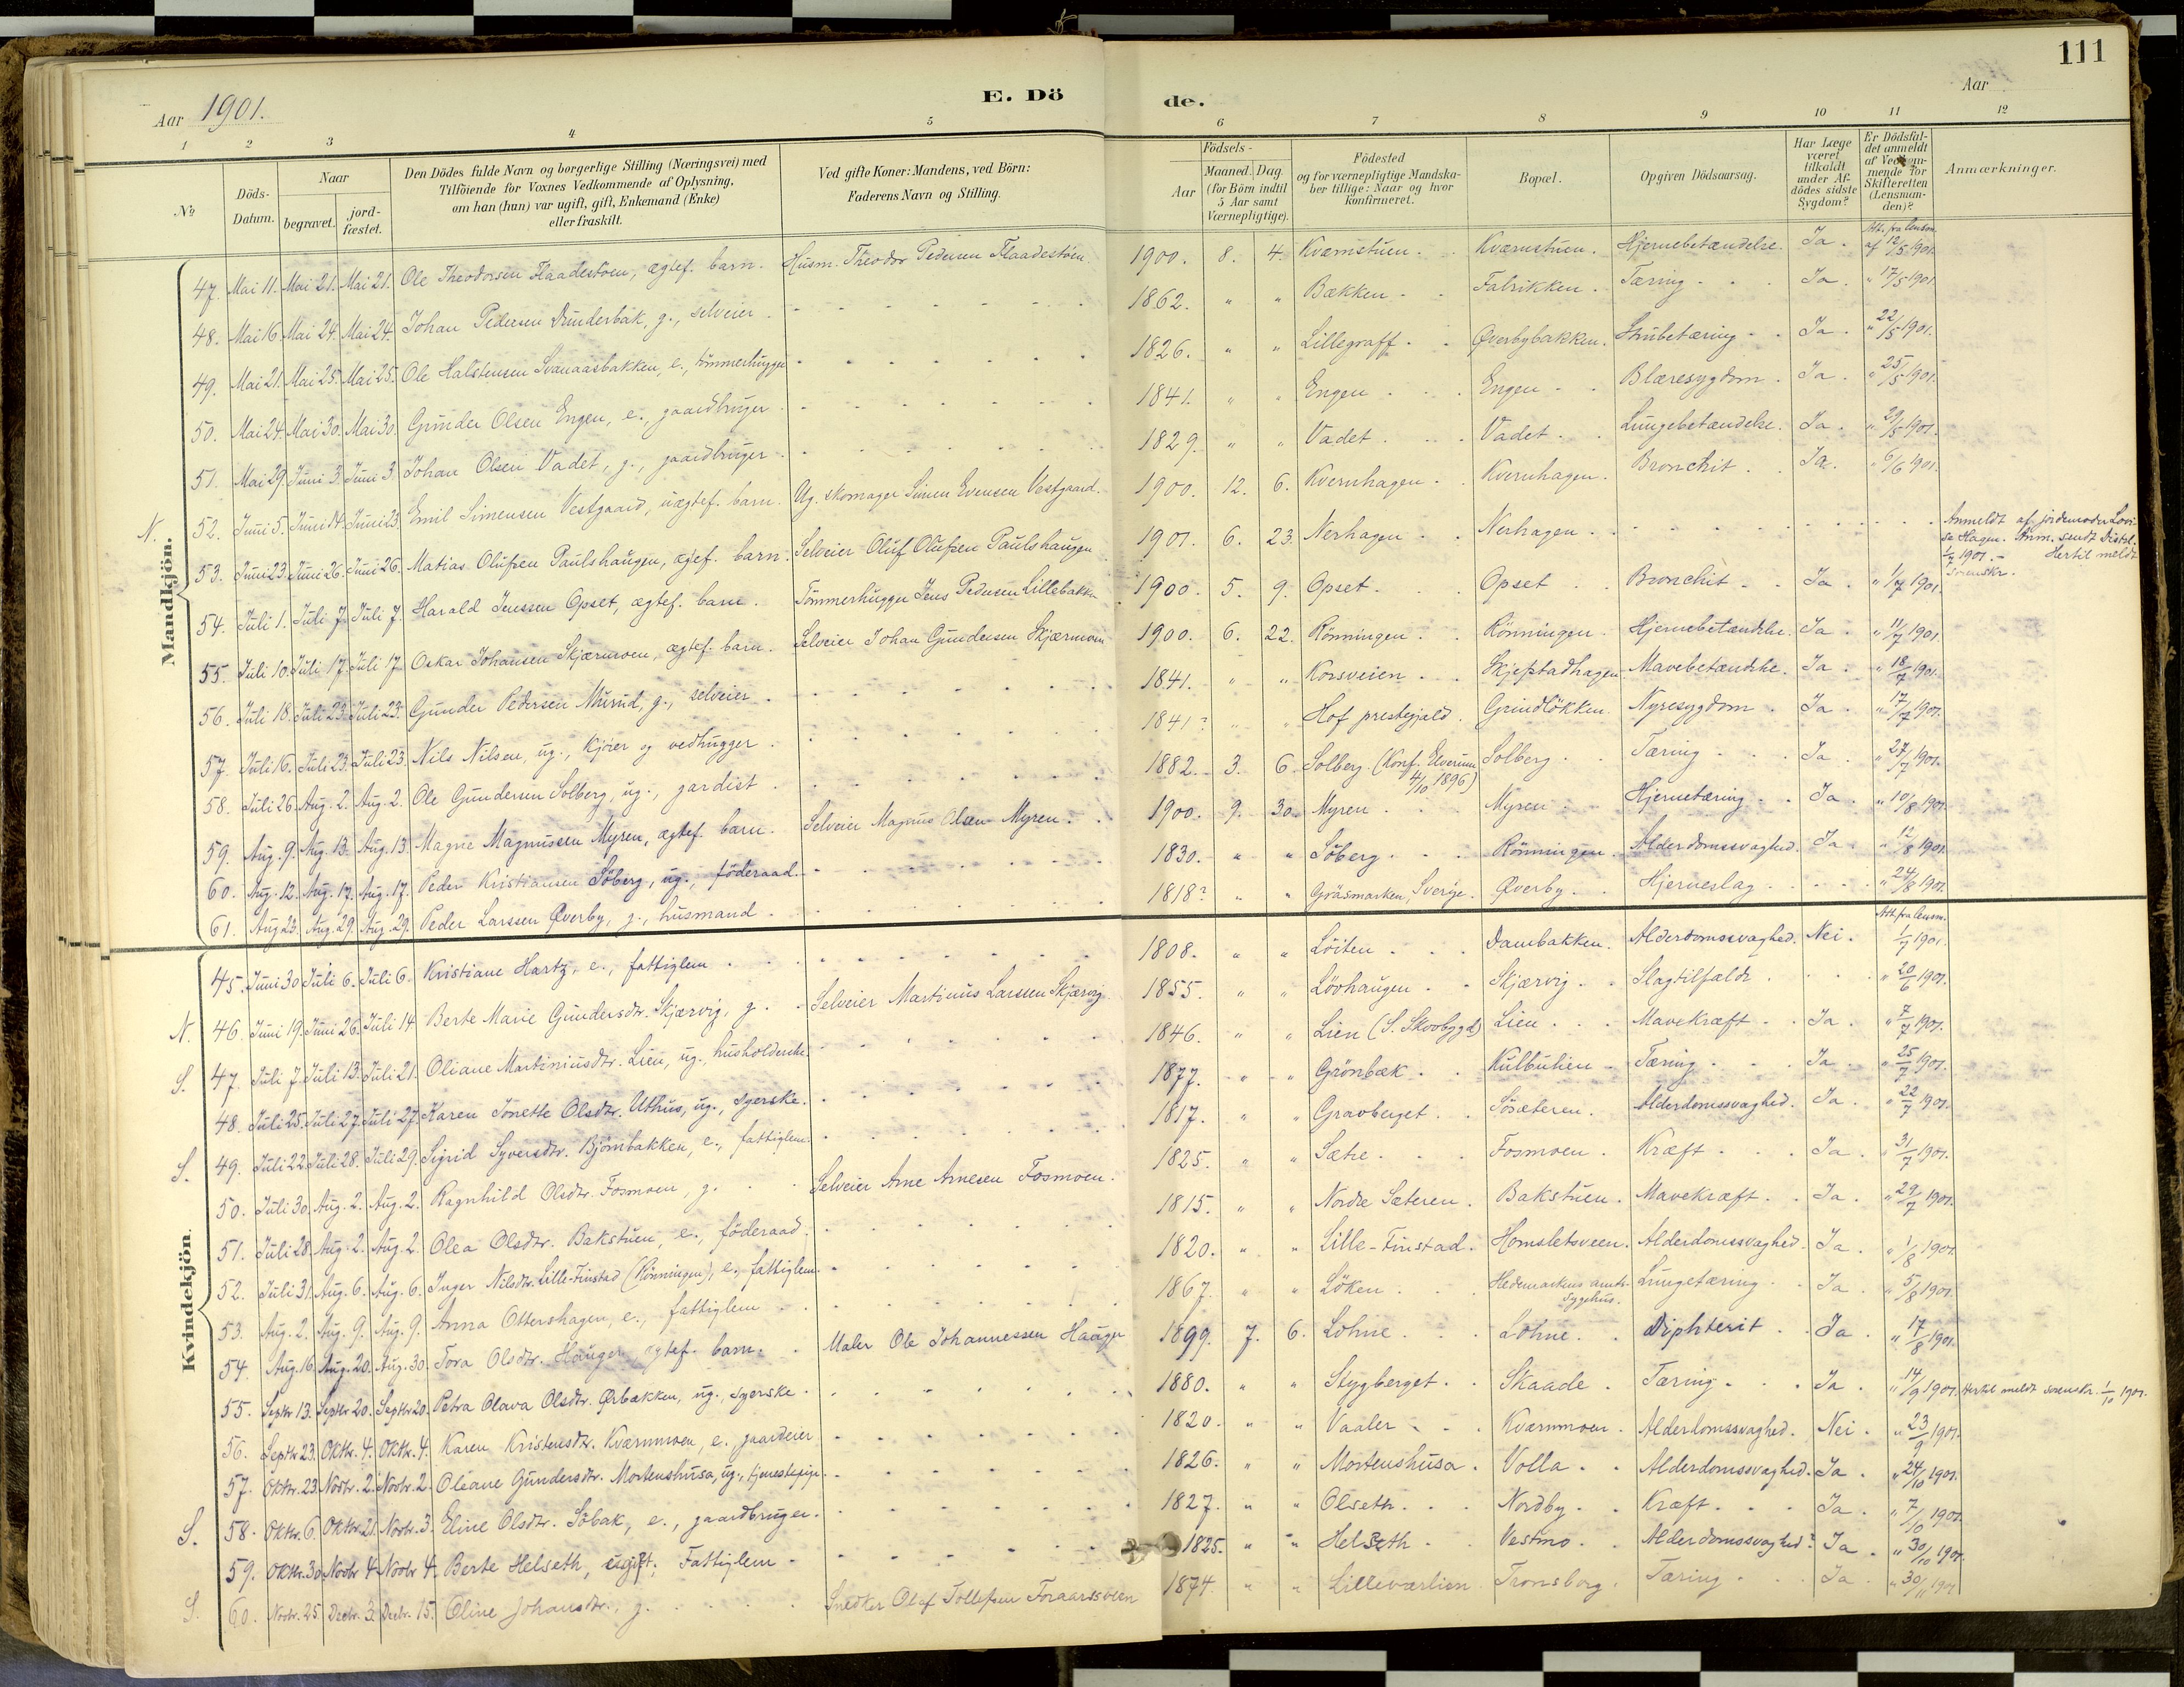 111
Aar 1901.
E. Dö
de.
Aar
1 2 3 4 5 6 7 8 9 10 11 12
No
Döds-Datum.
Naar begravet. jord-fæstet.
Den Dödes fulde Navn og borgerlige Stilling (Næringsvei) med Tilföiende for Voxnes Vedkommende af Oplysning, om han (hun) var ugift, gift, Enkemand (Enke) eller fraskilt.
Ved gifte Koner: Mandens, ved Börn: Faderens Navn og Stilling.
Födsels-
Aar Maaned. Dag. (for Börn indtil 5 Aar samt Værnepligtige).
Födested og for værnepligtige Mandskaber tillige: Naar og hvor konfirmeret.
Bopæl.
Opgiven Dödsaarsag.
Har Læge været tilkaldt under Afdödes sidste Sygdom?
Er Dödsfaldet anmeldt af Vedkommende for Skifteretten (Lensmanden)?
Anmærkninger.
Mandkjön.
47. Mai 11. Mai 21. Mai 21. Ole Theodorsen Flaadestöen, ægtef. barn. Husm. Theodor Pedersen Flaadestöen. 1900. 8. 4. Kværnstuen. Kværnstuen. Hjernebetændelse. Ja. Att. fra lensm. af 12/5 1901.
48. Mai 16. Mai 24. Mai 24. Johan Pedersen Dunderbak, g., selveier 1862. " " Bækken Fabrikken. Tæring Ja. " 17/5 1901
49. Mai 21. Mai 25. Mai 25. Ole Halstensen Svanaasbakken, e., tömmerhugger 1826. " " Lillegraff Øverbybakken. Strubetæring Ja. " 22/5 1901.
50. Mai 24. Mai 30. Mai 30. Gunder Olsen Engen, e., gaardbruger 1841. " " Engen Engen Blæresygdom. Ja. " 25/5 1901.
51. Mai 29. Juni 3. Juni 3. Johan Olsen Vadet, g., gaardbruger 1829. " " Vadet. Vadet. Lungebetændelse. Ja. " 29/5 1901.
N. 52. Juni 5. Juni 14. Juni 23. Emil Simensen Vestgaard, uægtef. barn. Ug. skomager Simen Evensen Vestgaard. 1900. 12. 6. Kvernhagen. Kvernhagen. Bronchit. Ja. " 6/6 1901.
53. Juni 23. Juni 26. Juni 26. Matias Olufsen Paulshaugen, ægtef. barn. Selveier Oluf Olufsen Paulshaugen 1901. 6. 23. Nerhagen Nerhagen Anmeldt af jordemoder Lovise Hagen. Anm. sendt Distrl. 1/7 1901. - Hertil meldt Sorenskr.
54. Juli 1. Juli 7. Juli 7. Harald Jenssen Opset, ægtef. barn. Tömmerhugger Jens Pedersen Lillebakken 1900. 5. 9. Opset. Opset Bronchit Ja " 1/7 1901.
55. Juli 10. Juli 17. Juli 17. Oskar Johansen Skjærmoen, ægtef. barn. Selveier Johan Gundersen Skjærmoen 1900. 6. 22. Rönningen. Rönningen. Hjernebetændelse. Ja. " 11/7 1901
56. Juli 18. Juli 23. Juli 23. Gunder Pedersen Murud, g., selveier. 1841. " " Korsveien Skjefstadhagen Mavebetændelse. Ja. " 18/7 1901.
57. Juli 16. Juli 23. Juli 23. Nils Nilsen, ug., kjörer og vedhugger. 1841? " " Hof prestegjæld. Grindlökken. Nyresygdom. Ja. " 17/7 1901.
58. Juli 26. Aug. 2. Aug. 2. Ole Gundersen Solberg, ug., gardist. 1882. 3. 6. Solberg. (Konf. Elverum 4/10 1896) Solberg. Tæring Ja. " 27/7 1901.
59. Aug. 9. Aug. 13. Aug. 13. Magne Magnussen Myren, ægtef. barn. Selveier Magnus Olsen Myren. 1900. 9. 30. Myren Myren Hjernetæring Ja. " 10/8 1901
60. Aug. 12. Aug. 17. Aug. 17. Peder Kristiansen Söberg, ug., föderaad. 1830. " " Söberg. Rönningen. Alderdomssvaghed. Ja. " 12/8 1901.
61. Aug. 23. Aug. 29. Aug. 29. Peder Larssen Øverby, g., husmand. 1818? " " Gräsmarken, Sverige. Øverby. Hjerneslag " 24/8 1901.
Kvindekjön.
45. Juni 30. Juli 6. Juli 6. Kristiane Hartz, e., fattiglem 1808. " " Löiten Dambakken. Alderdomssvaghed. Nei. Att. fra lensm. 1/7 1901.
N. 46. Juni 19. Juni 26. Juli 14. Berte Marie Gundersdtr. Skjærvig, g. Selveier Martinus Larssen Skjærvig. 1855. " " Lövhaugen Skjærvig. Slagtilfælde " 20/6 1901.
S. 47. Juli 7. Juli 13. Juli 21. Oliane Martiniusdtr. Lien, ug., husholderske. 1846. " " Lien (S. Skovbygd) Lien Mavekræft Ja. " 7/7 1901.
48. Juli 25. Juli 27. Juli 27. Karen Jonette Olsdtr. Uthus, ug., syerske. 1877. " " Grönbæk Kulbulien Tæring Ja. " 25/7 1901.
S. 49. Juli 22. Juli 28. Juli 29. Sigrid Syversdtr. Björnbakken, e., fattiglem. 1817. " " Gravberget Sösæteren. Alderdomssvaghed. Ja. " 22/7 1901.
50. Juli 30. Aug. 2. Aug. 2. Ragnhild Olsdtr. Fosmoen, g. Selveier Arne Arnesen Fosmoen. 1825. " " Sætre Fosmoen. Kræft Ja. " 31/7 1901.
51. Juli 28. Aug. 2. Aug. 2. Olea Olsdtr. Bakstuen, e., föderaad. 1815. " " Nordre Sæteren. Bakstuen. Mavekræft. Ja. " 29/7 1901.
52. Juli 31. Aug. 6. Aug. 6. Inger Nilsdtr. Lille-Finstad (Rönningen), e., fattiglem. 1820. " " Lille-Finstad. Homsletsveen. Alderdomssvaghed. Ja. " 1/8 1901
53. Aug. 2. Aug. 9. Aug. 9. Anna Ottershagen, e., fattiglem 1867. " " Löken Hedemarkens amts-sygehus. Lungetæring Ja. " 5/8 1901.
54. Aug. 16. Aug. 20. Aug. 30. Tora Olsdtr. Hauger, ægtef. barn. Maler Ole Johannessen Hauger 1899. 7. 6. Lohne Lohne. Diphterit Ja " 17/8 1901.
55. Septbr 13. Septbr 20. Septbr 20. Petra Olava Olsdtr. Ørbækken, ug., syerske. 1880. " " Stygberget Skaade Tæring Ja " 14/9 1901. Hertil meldt sorenskr. 1/10 1901.
56. Septbr 23. Oktbr. 4. Oktbr. 4. Karen Kristensdtr. Kværnmoen, e., gaardeier 1820. " " Vaaler Kværnmoen. Alderdomssvaghed. Nei. " 23/9 1901.
57. Oktbr. 23. Novbr. 2. Novbr. 2. Oleane Gundersdtr. Mortenshusa, ug., tjenestepige. 1826. " " Mortenshusa. Volla. Alderdomssvaghed. Ja. " 24/10 1901.
S. 58. Oktbr. 6. Oktbr. 21. Novbr. 3. Eline Olsdtr. Söbak, e., gaardbruger. 1827. " " Olseth. Nordby. Kræft. Ja. " 7/10 1901.
59. Oktbr. 30. Novbr 4. Novbr 4. Berte Helseth, ugift, Fattiglem 1825. " " Helseth Vestmo Alderdomssvaghed? Ja. " 30/10 1901.
S. 60. Novbr. 25. Decbr. 3. Decbr. 15. Oline Johansdtr., g. Snedker Olaf Tollefsen Foraarssveen 1874. " " Lilleværlien Tronsborg. Tæring Ja. " 30/11 1901